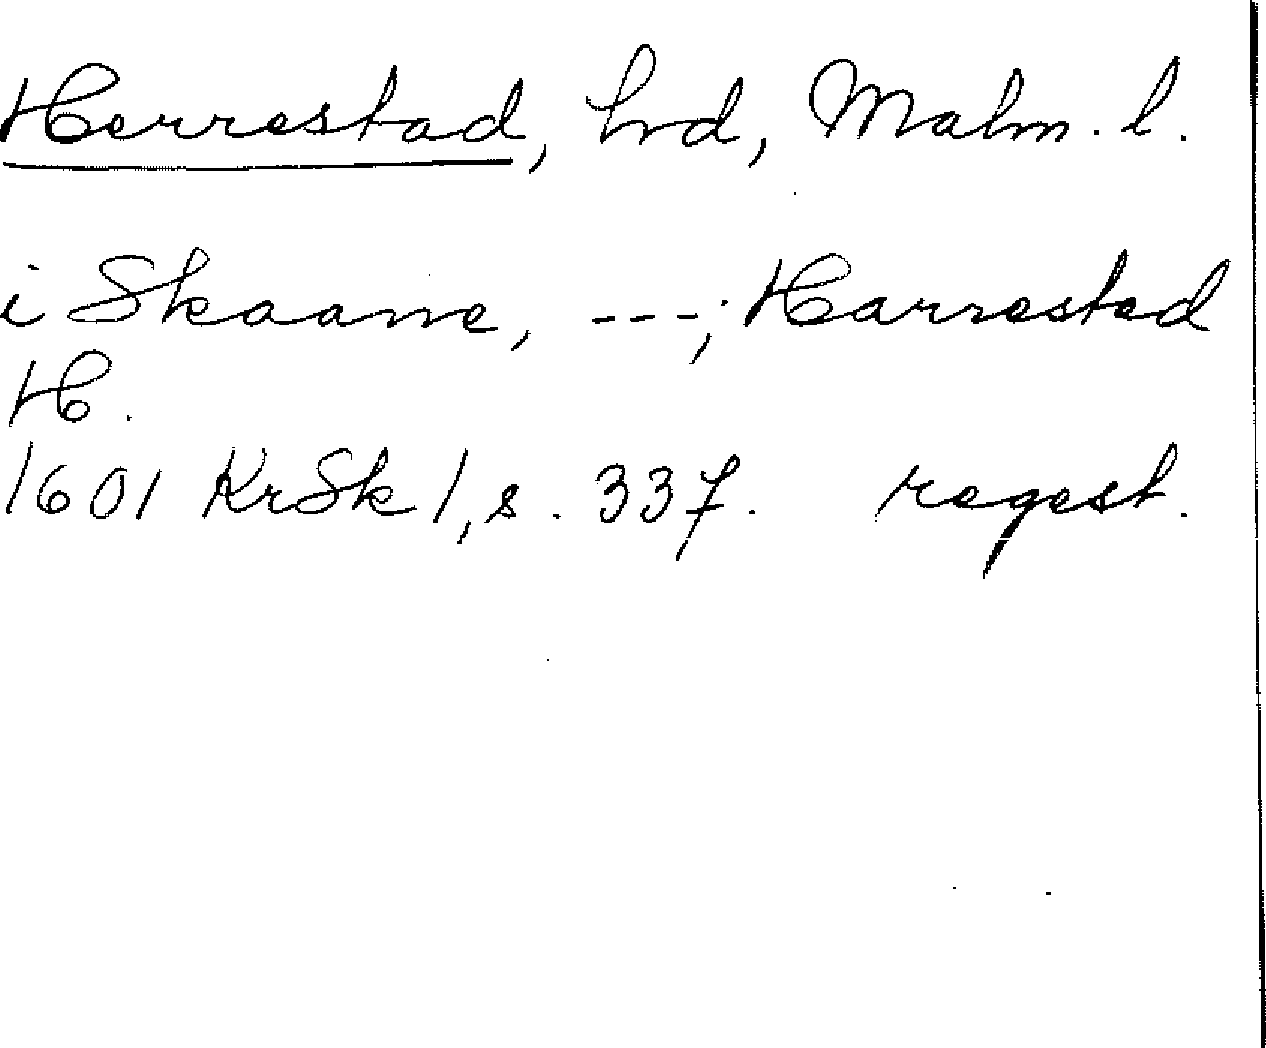 Herrestad, hrd, Malm. l.
i Skaane, ---; Harrested
H.
1601 KrSk 1, s. 337. regest.